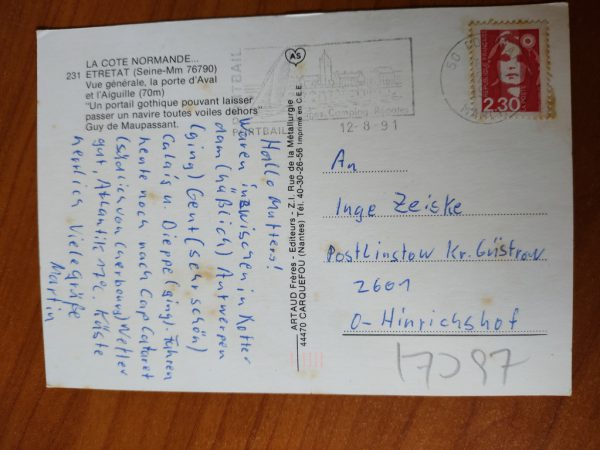 LA COTE NORMANDE...
231 ETRETAT (Seine-Mm 76790)
Vue générale, la porte d'Aval
et l'Aiguille (70m)
"Un portail gothique pouvant laisser
passer un navire toutes voiles dehors"
Guy de Maupassant.
Hallo Mutters!
Waren inzwischen in Rotter
dam (häßlich) Antwerpen
(ging) Gent (sehr schön)
Calais u. Dieppe (ging). Fahren
heute noch nach Cap Cateret
(südlich von Cherbourg) Wetter
gut, Atlantik 17°C. Küste
herrlich Viele Grüße
Martin
ARTAUD Frères - Editeurs - Z.I. Rue de la Métallurgie
44470 CARQUEFOU (Nantes) Tél. 40-30-26-56 Imprimé en C.E.E.
AS
PORTBAIL
PORTBAIL
Camping
12-8-91
50
MANCHE
REPUBLIQUE FRANÇAISE
2,30
An
Inge Zeiske
Postlinstow Kr. Güstrow
2601
O-Hinrichshof